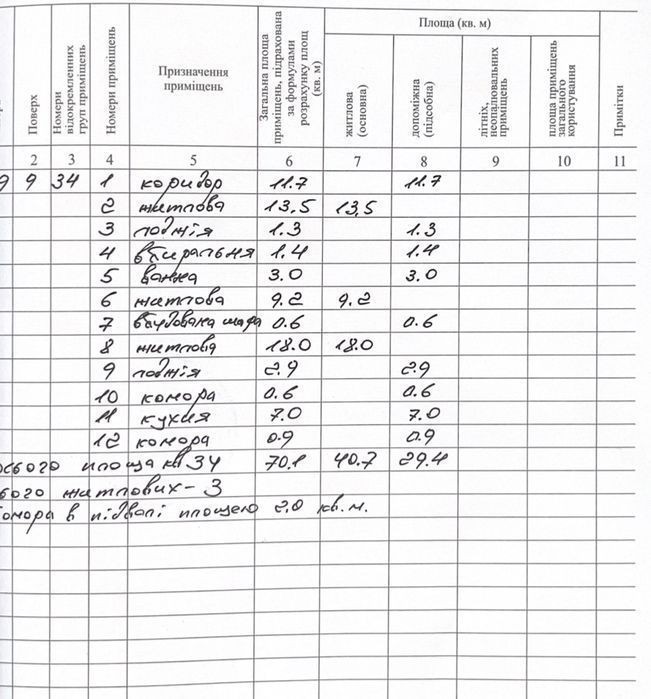 Поверх
Номери відокремленних груп приміщень
Номери приміщень
Призначення приміщень
Загальна площа приміщень, підрахована за формулами розрахунку площ (кв. м)
Площа (кв. м)
житлова (основна)
допоміжна (підсобна)
літніх, неопалювальних приміщень
площа приміщень загального користування
Примітки
2 3 4 5 6 7 8 9 10 11
9 9 34 1 коридор 11.7 11.7
2 житлова 13,5 13,5
3 лоджія 1.3 1.3
4 вбиральня 1.4 1.4
5 ванна 3.0 3.0
6 житлова 9.2 9.2
7 вбудована шафа 0.6 0.6
8 житлова 18.0 18.0
9 лоджія 2.9 2.9
10 комора 0.6 0.6
11 кухня 7.0 7.0
12 комора 0.9 0.9
сього площа кв 34 70.1 40.7 29.4
ього житлових - 3
омора в підвалі площею 2.0 кв.м.